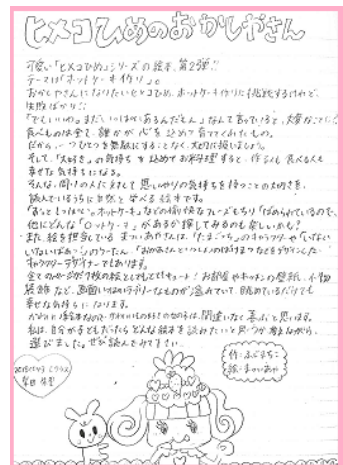 ヒメコひめのおかしやさん
可愛い「ヒメコひめ」シリーズの絵本、第2弾!!
テーマは「ホットケーキ作り」。
おかしやさんになりたいヒメコひめ、ホットケーキ作りに挑戦するけれど、
失敗ばかり!!
「でもいいわ。まだ、いっぱいあるんだもん」なんて言っていると、大変なことに!
食べものは全て、誰かが心を込めて育ててくれたもの。
だから、一つひとつを無駄にすることなく、大切に扱いましょう。
そして、"大好き"の気持ちを込めてお料理すると、作る人も食べる人も
幸せな気持ちになる。
そんな、周りの人に対して思いやりの気持ちを持つことの大切さを、
読んでいるうちに自然と学べる絵本です。
ホットケーキ」などの愉快なフレーズもちりばめられているので、
他にどんな「ホットケーキ」があるか探してみるのも楽しいかも?
また、絵を担当している まついあやさんは、「たまごっち」のキャラクターや「いない
いないばあっ!」のうーたん、「おかあさんといっしょ」の などをデザインした
キャラクターデザイナーでもあります。
全てのページが1枚の絵としてもとてもキュート! お部屋やキッチンの壁紙、小物
装飾など、画面いっぱいガーリーなものが溢れていて、眺めているだけでも
幸せな気持ちになります。
かわいい 絵本なので、かわいいもの好きの女の子は、間違いなく喜ぶと思います。
私は、自分が子どもだったらどんな絵本を読みたいと思うか考えながら、
選びました。ぜひ読んでみて下さい。
作:ふじまちこ
絵:まついあや